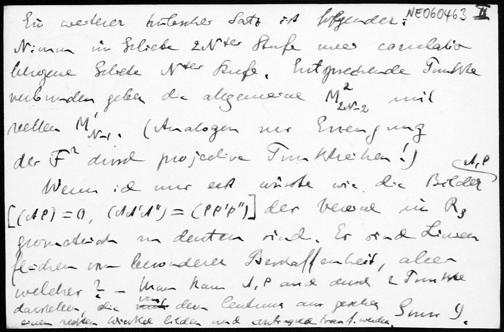 NE060463 II
Ein weiterer hübscher Satz ist folgender:
Nimm im Gebiete 2Nter Stufe zwei correlativ
bezogene Gebiete Nter Stufe. Entsprechende Punkte
verbunden geben die allgemeine M²2N-2 mit
reellen M'N-1. (Analogon zur Erzeugung
der F² durch projective Punktreihen!)
Wenn ich nur erst wüsste wie die Bilder A,P
[(AP)=0, (AA'A'')=(PP'P'')] der in R3
geometrisch zu deuten sind. Es sind Linien
flächen von besonderer Beschaffenheit, aber
welcher? – Man kann A,P auch durch 2 Punkte
darstellen, die vom Centrum aus gesehen
einen rechten Winkel bilden und transf. werden.